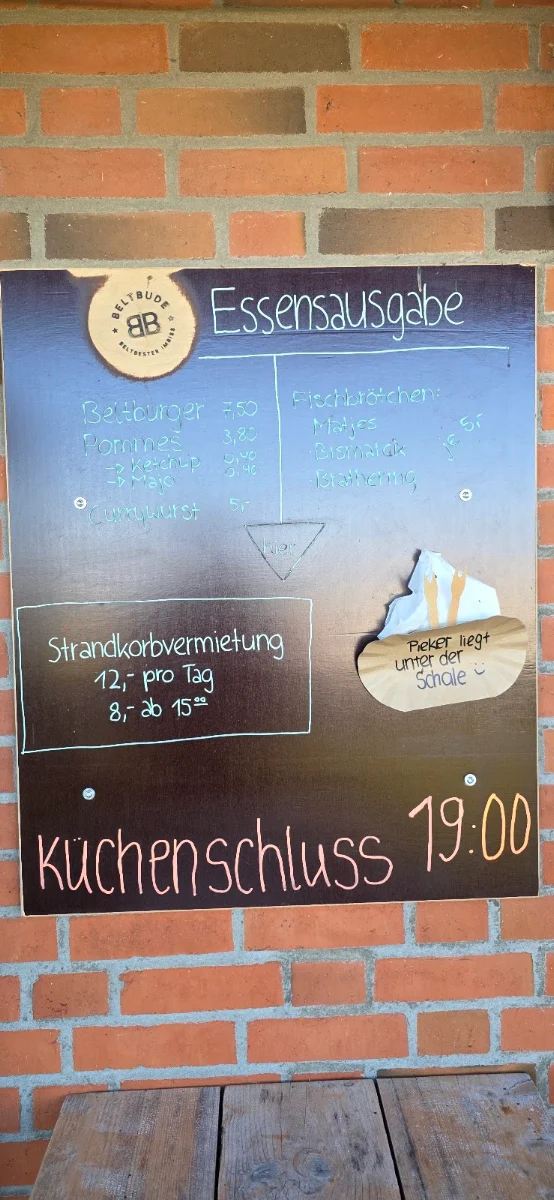 BELTBUDE
BB
BELTBESTER IMBISS
Essensausgabe
Beltburger 7,50
Pommes 3,80
-> Ketchup 0,40
-> Majo 0,40
Currywurst 5,-
Fischbrötchen:
Matjes
Bismarck je 5,-
Brathering
Hier
Strandkorbvermietung
12,- pro Tag
8,- ab 15⁰⁰
Pieker liegt
unter der
Schale
Küchenschluss 19:00